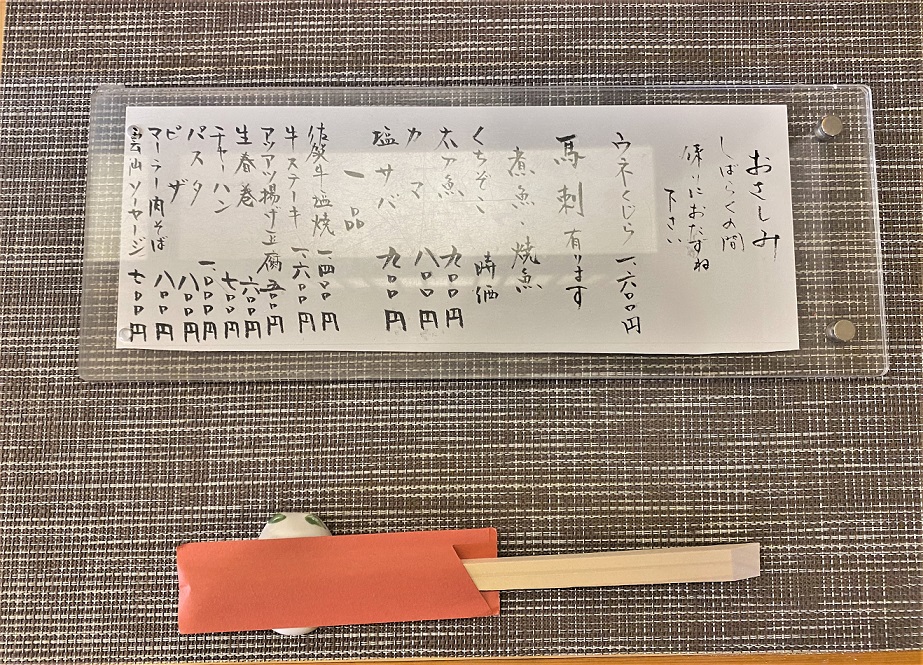 おさしみ
しばらくの間
係りにおたずね
下さい
ウネくじら 一、六〇〇円
馬刺 有ります
煮魚・焼魚
くちぞこ 時価
太刀魚 九〇〇円
カマ 八〇〇円
塩サバ 九〇〇円
一品
佐賀牛塩焼 一、四〇〇円
牛ステーキ 一、六〇〇円
アツアツ揚げ豆腐 五〇〇円
生春巻 六〇〇円
チャーハン 七〇〇円
パスタ 一、〇〇〇円
ピザ 八〇〇円
マーラー肉そば 八〇〇円
雲仙ソーセージ 七〇〇円